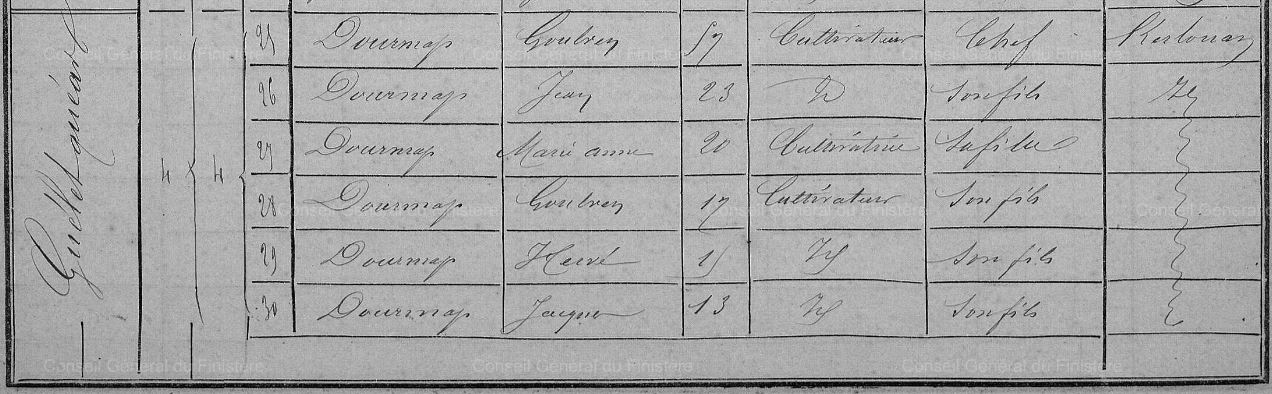 25 Dourmap Goulven 57 Cultivateur Chef Kerlouan
26 Dourmap Jean 23 Id Son fils Id
27 Dourmap Marie anne 20 Cultivatrice Sa fille
28 Dourmap Goulven 17 Cultivateur Son fils
4 4
29 Dourmap Hervé 15 Id Son fils
30 Dourmap Jacques 13 Id Son fils
Conseil Général du Finistère